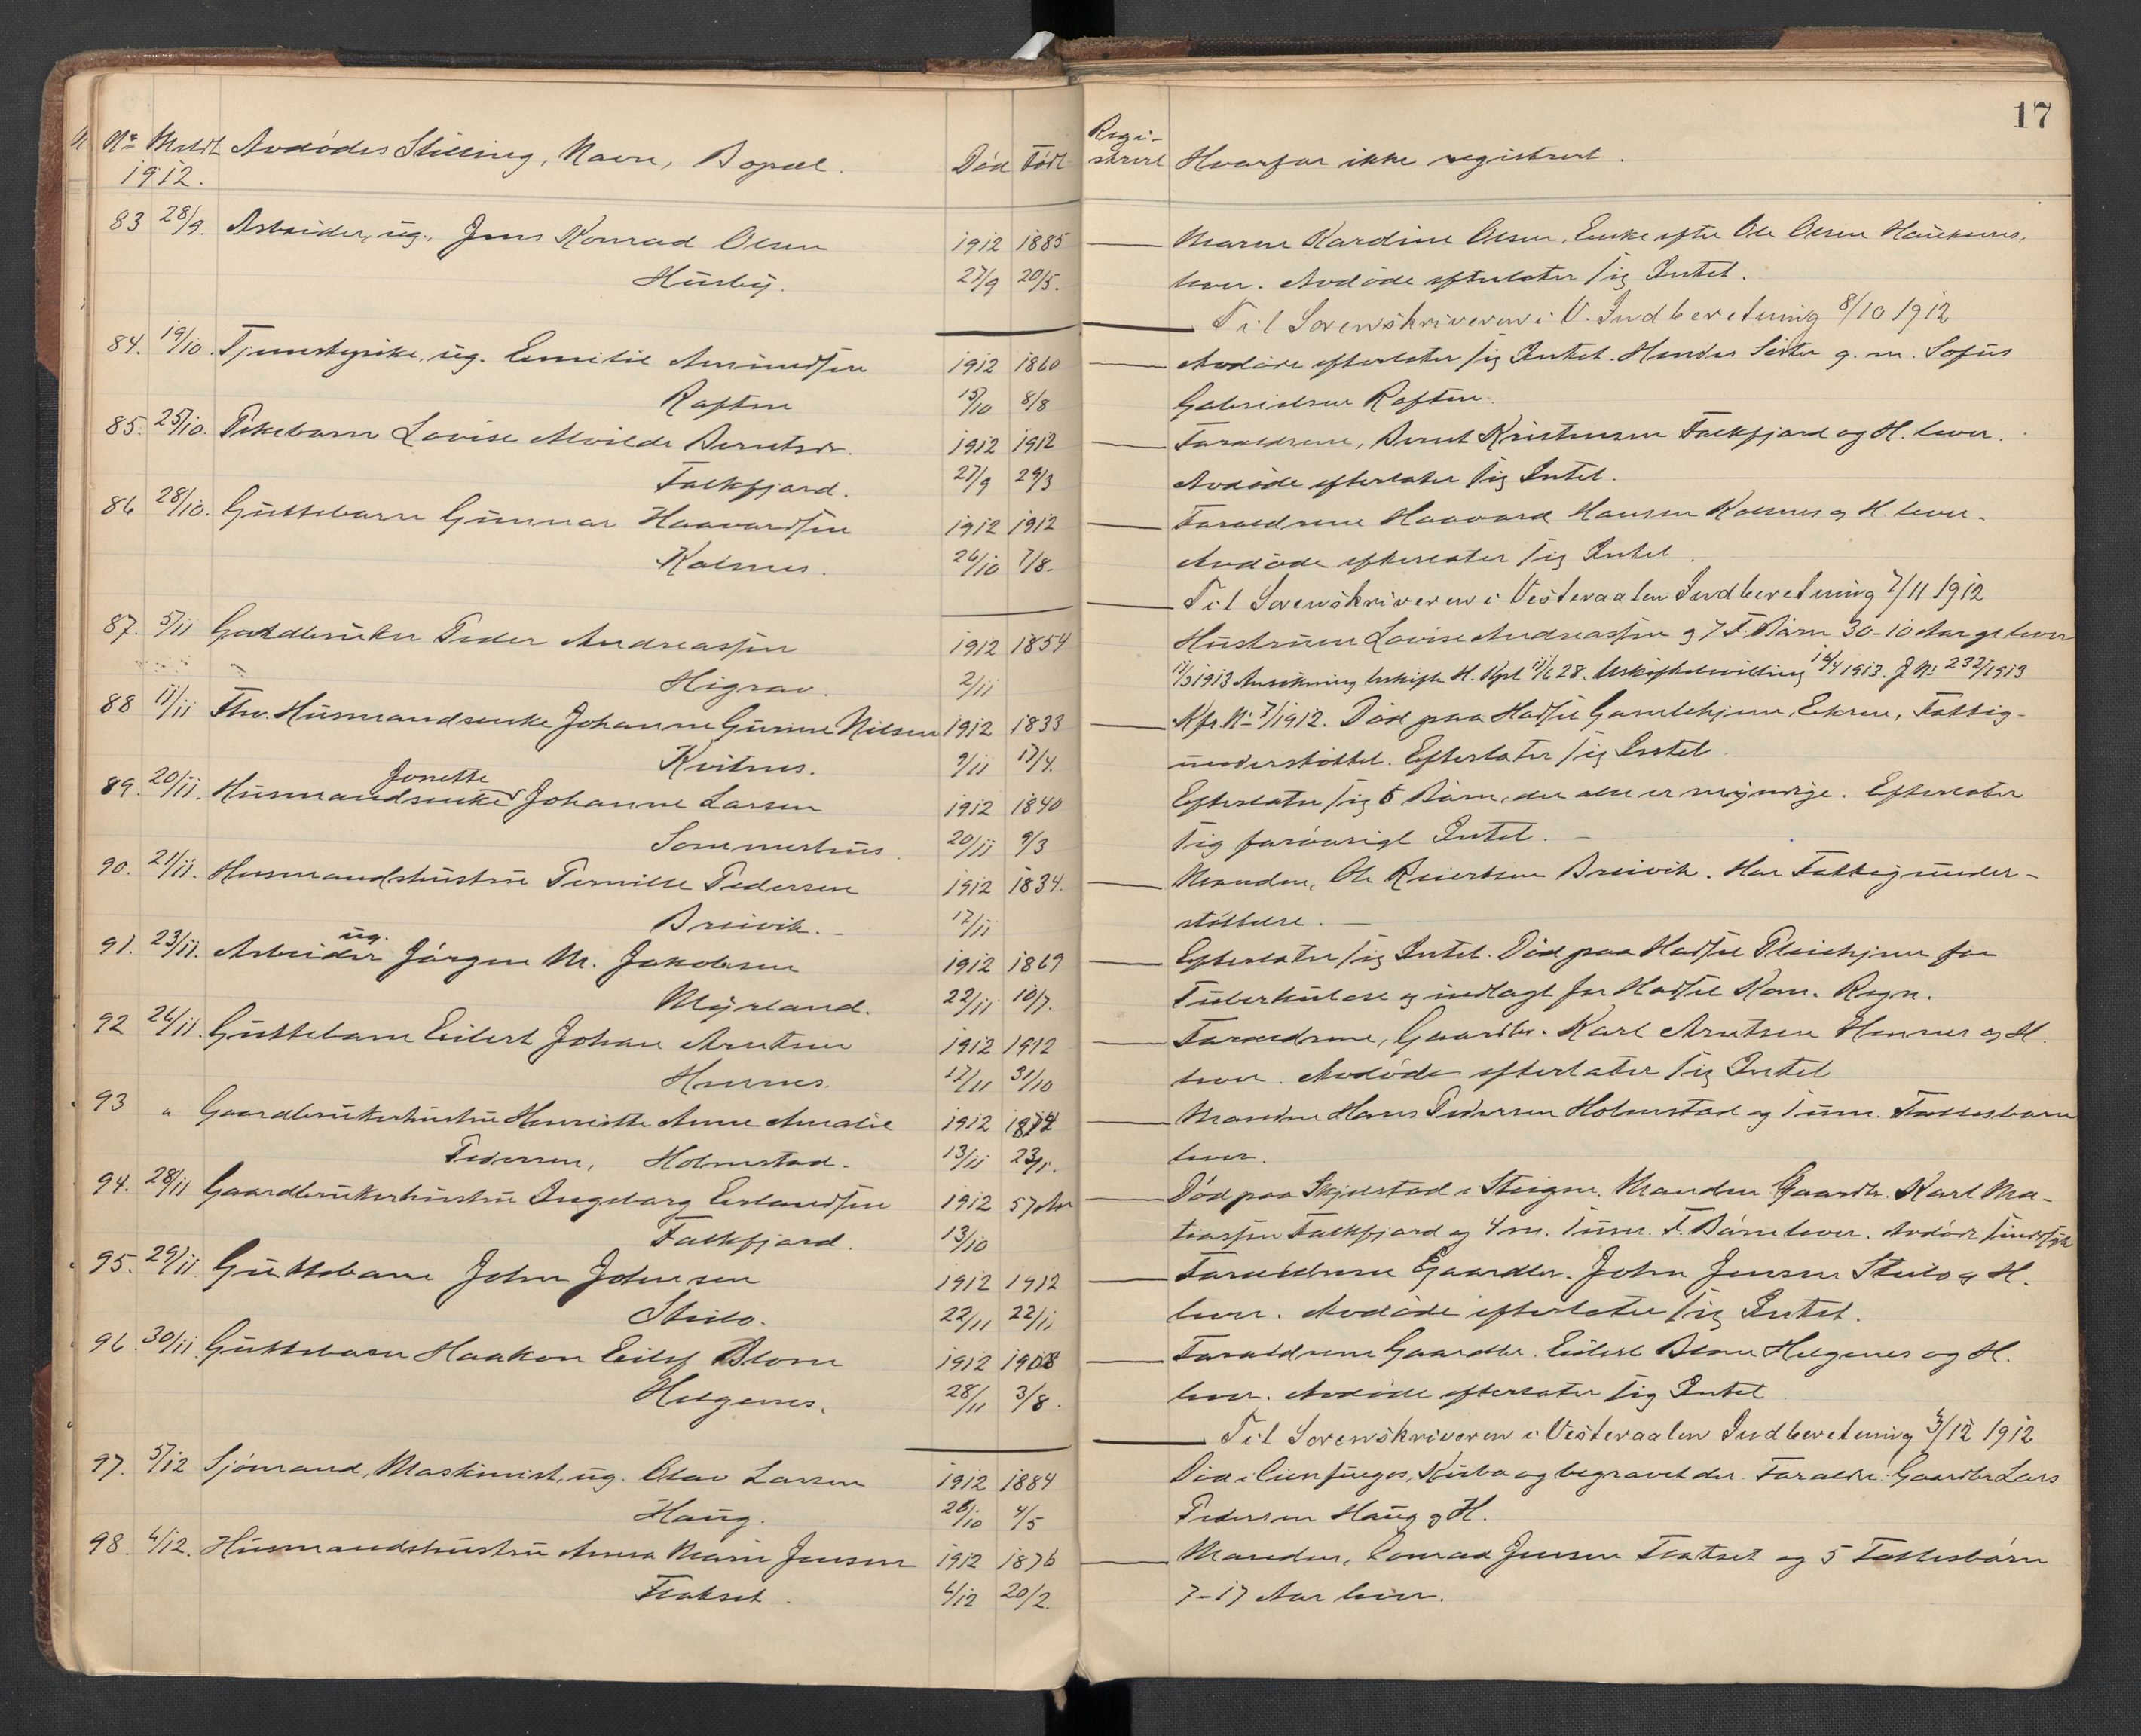 17
No Meldt Avdødes Stilling, Navn, Bopæl. Død Født Regi-
1912. strert Hvorfor ikke registrert.
83 28/9. Arbeider, ug., Jens Konrad Olsen 1912 1885 Maren Kardine Olsen, Enke efter Ole Olsen Haukenes,
Husby. 27/9 20/5. lever. Avdøde efterlater sig Intet.
Til Sorenskriveren i V. Indberetning 8/10 1912
84. 19/10. Tjenestepike, ug. Emilie Amundsen 1912 1860 Avdøde efterlater sig Intet. Hendes Søster g. m. Sofus
Raften 15/10 8/8 Gabrielsen Raften.
85. 25/10. Pikebarn Lovise Alvilde Berntsdr. 1912 1912 Forældrene, Bernt Kristensen Falkfjord og H. lever.
Falkfjord. 27/9 29/3 Avdøde efterlater sig Intet.
86 28/10. Guttebarn Gunnar Haavardsen 1912 1912 Forældrene Haavard Hansen Kalsnes og H. lever.
Kalsnes. 26/10 7/8. Avdøde efterlater sig Intet.
Til Sorenskriveren i Vesteraalen Indberetning 7/11 1912
87. 5/11 Gaardbruker Peder Andreassen 1912 1854 Hustruen Lovise Andreassen og 7 F. Børn 30-10 Aar gl. lever
Higrav. 2/11 11/3 1913 Ansøkning Uskifte H. Kgl. 11/6 28. Uskiftebevilling 16/4 1913. J No 232/1913
88 11/11 Fhv. Husmandsenke Johanne Gurine Nilsen 1912 1833 Kfr. No 7/1912. Død paa Hadsel Gamlehjem, Ekren, Fattig-
Kvitnes. 9/11 17/4. understøttet. Efterlater sig Intet
89. 20/11. Husmandsenke Jonette Johanne Larsen 1912 1840 Efterlater sig 5 Børn, der alle er myndige. Efterlater
Sommerhus. 20/11 9/3 sig forøvrigt Intet.
90. 21/11. Husmandshustru Pernille Pedersen 1912 1834. Manden, Ole Reiertsen Breivik. Har Fattigunder-
Breivik. 17/11 støttelse.
91. 23/11. Arbeider ug. Jørgen M. Jakobsen 1912 1869 Efterlater sig Intet. Død paa Hadsel Pleiehjem for
Myrland. 22/11 10/7. Tuberkuløse og indlagt for Hadsel Kom. Regn.
92 26/11. Guttebarn Eilert Johan Arntsen 1912 1912 Forældrene, Gaardbr. Karl Arntsen Hennes og H.
Hennes. 17/11 31/10 lever. Avdøde efterlater sig Intet
93 " Gaardbrukerhustru Henriette Anne Amalie 1912 1874 Manden Hans Pedersen Holmstad og 1 um. Fællesbarn
Pedersen, Holmstad. 13/11 23/1. lever.
94. 28/11 Gaardbrukerhustru Ingeborg Erlandsen 1912 57 Aar Død paa Skjelstad i Steigen. Manden Gaardbr. Karl Ma-
Falkfjord. 13/10 tiassen Falkfjord og 4 m. 1 um. F. Børn lever. Avdøde sindssyk
95. 29/11 Guttebarn John Johnsen 1912 1912 Forældrene Gaardbr. John Jensen Steilo og H.
Steilo. 22/11 22/11 lever. Avdøde efterlater sig Intet.
96. 30/11 Guttebarn Haakon Eilif Blom 1912 1908 Forældrene Gaardbr. Eilert Blom Helgenes og H.
Helgenes. 28/11 3/8. lever. Avdøde efterlater sig Intet
Til Sorenskriveren i Vesteraalen Indberetning 3/12 1912
97. 5/12 Sjømand, Maskinist, ug. Olav Larsen 1912 1884 Død i Cienfuegos, Kuba og begravet der. Forældre: Gaardbr Lars
Haug. 28/10 4/5 Pedersen Haug og H.
98. 6/12. Husmandshustru Anna Marie Jensen 1912 1876 Manden, Conrad Jensen Flatset og 5 Fællesbørn
Flatset. 4/12 20/2. 7-17 Aar lever.